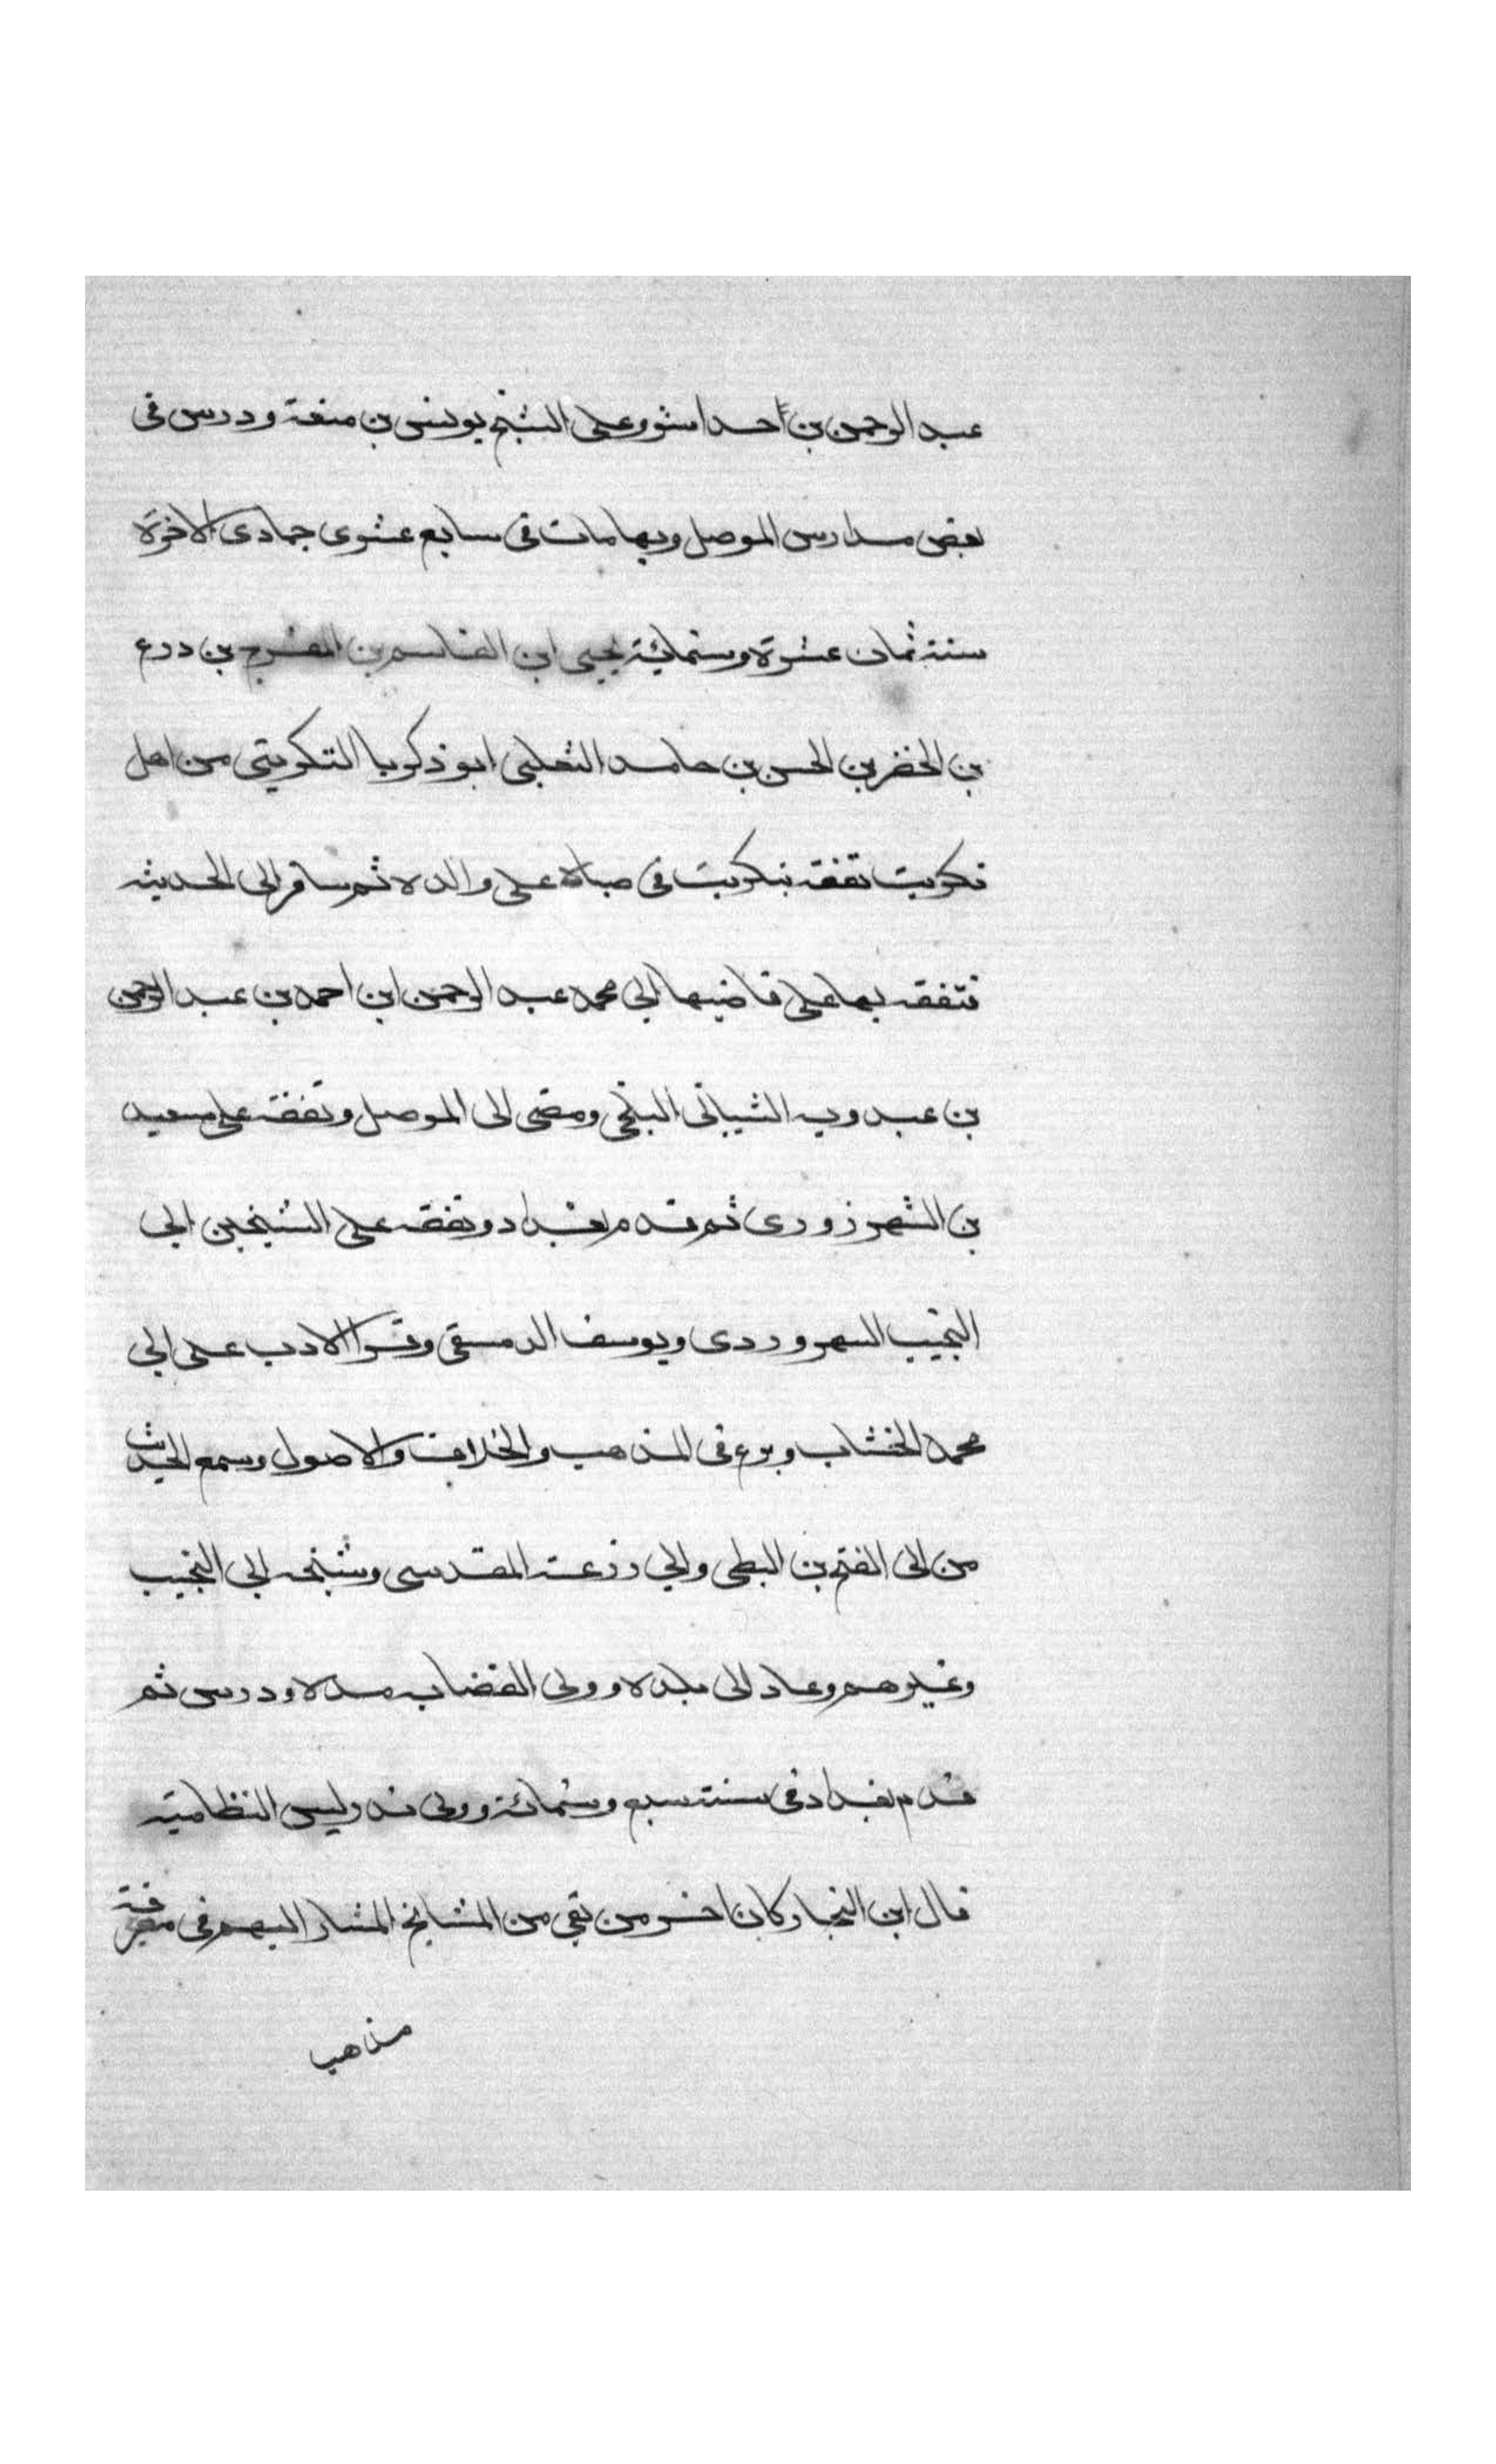 عبد الرحمن بن احد اشور على الشيخ يونس بن منعة ودرس في
بعض مدارس الموصل وبها مات في سابع عشرى جمادى الاخرة
سنة ثمان عشرة وستمائية يحيى ابن القاسم بن المفرج بن درع
بن الخضر بن الحسن بن حامد الثعلبي ابو ذكريا التكريتي من اهل
تكريت تفقه بتكريت في صباه على والده ثم سافر الى الحديثه
فتفقه بها على قاضيها ابي محمد عبد الرحمن ابن احمد بن عبد الرحمن
بن عبدويه الشيباني البلخي ومضى الى الموصل وتفقه على سعيد
بن الشهرزورى ثم قدم بغداد وتفقه على الشيخين ابي
النجيب السهروردى ويوسف الدمسقي وقرا الادب على ابي
محمد الخشاب وبرع في المذهب والخلاف والاصول وسمع الحديث
من ابي الفتح بن البطي وابي زرعة المقدسي وشيخه ابي النجيب
وغيرهم وعاد الى بلده وولى القضا ببلده ودرس ثم
قدم بغداد في سنة سبع وستمائة وولى تدريس النظامية
قال ابن النجار وكان اخر من بقي من المشايخ المشار اليهم في معرفة
مذهب